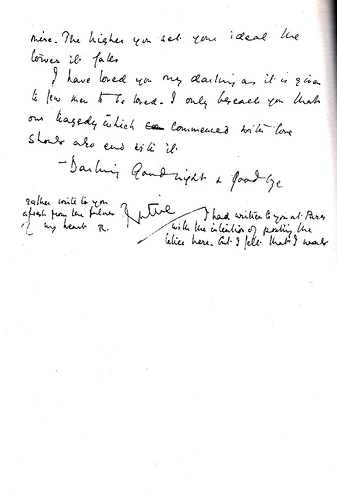 mine. The higher you set your ideal the
lower it falls
I have loved you my darling as it is given
to few men to be loved. I only beseech you that
our tragedy which commenced with love
should also end with it
- Darling Goodnight & Goodbye
Ruttie
I had written to you at Paris
with the intention of posting the
letter here. but I felt that I would
rather write to you
afresh from the fulness
of my heart R.